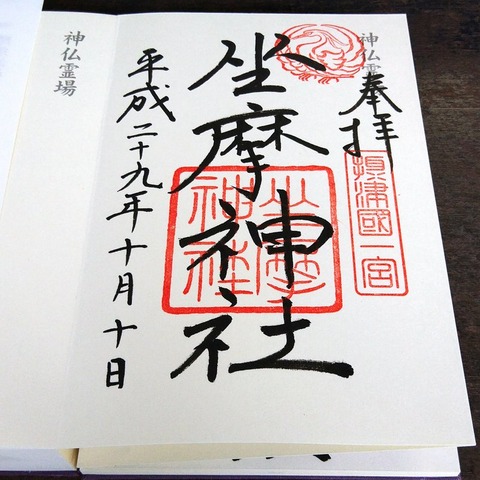 神仏霊
奉拝
摂津國一宮
坐摩神社
坐摩神社
平成二十九年十月十日
神仏霊場